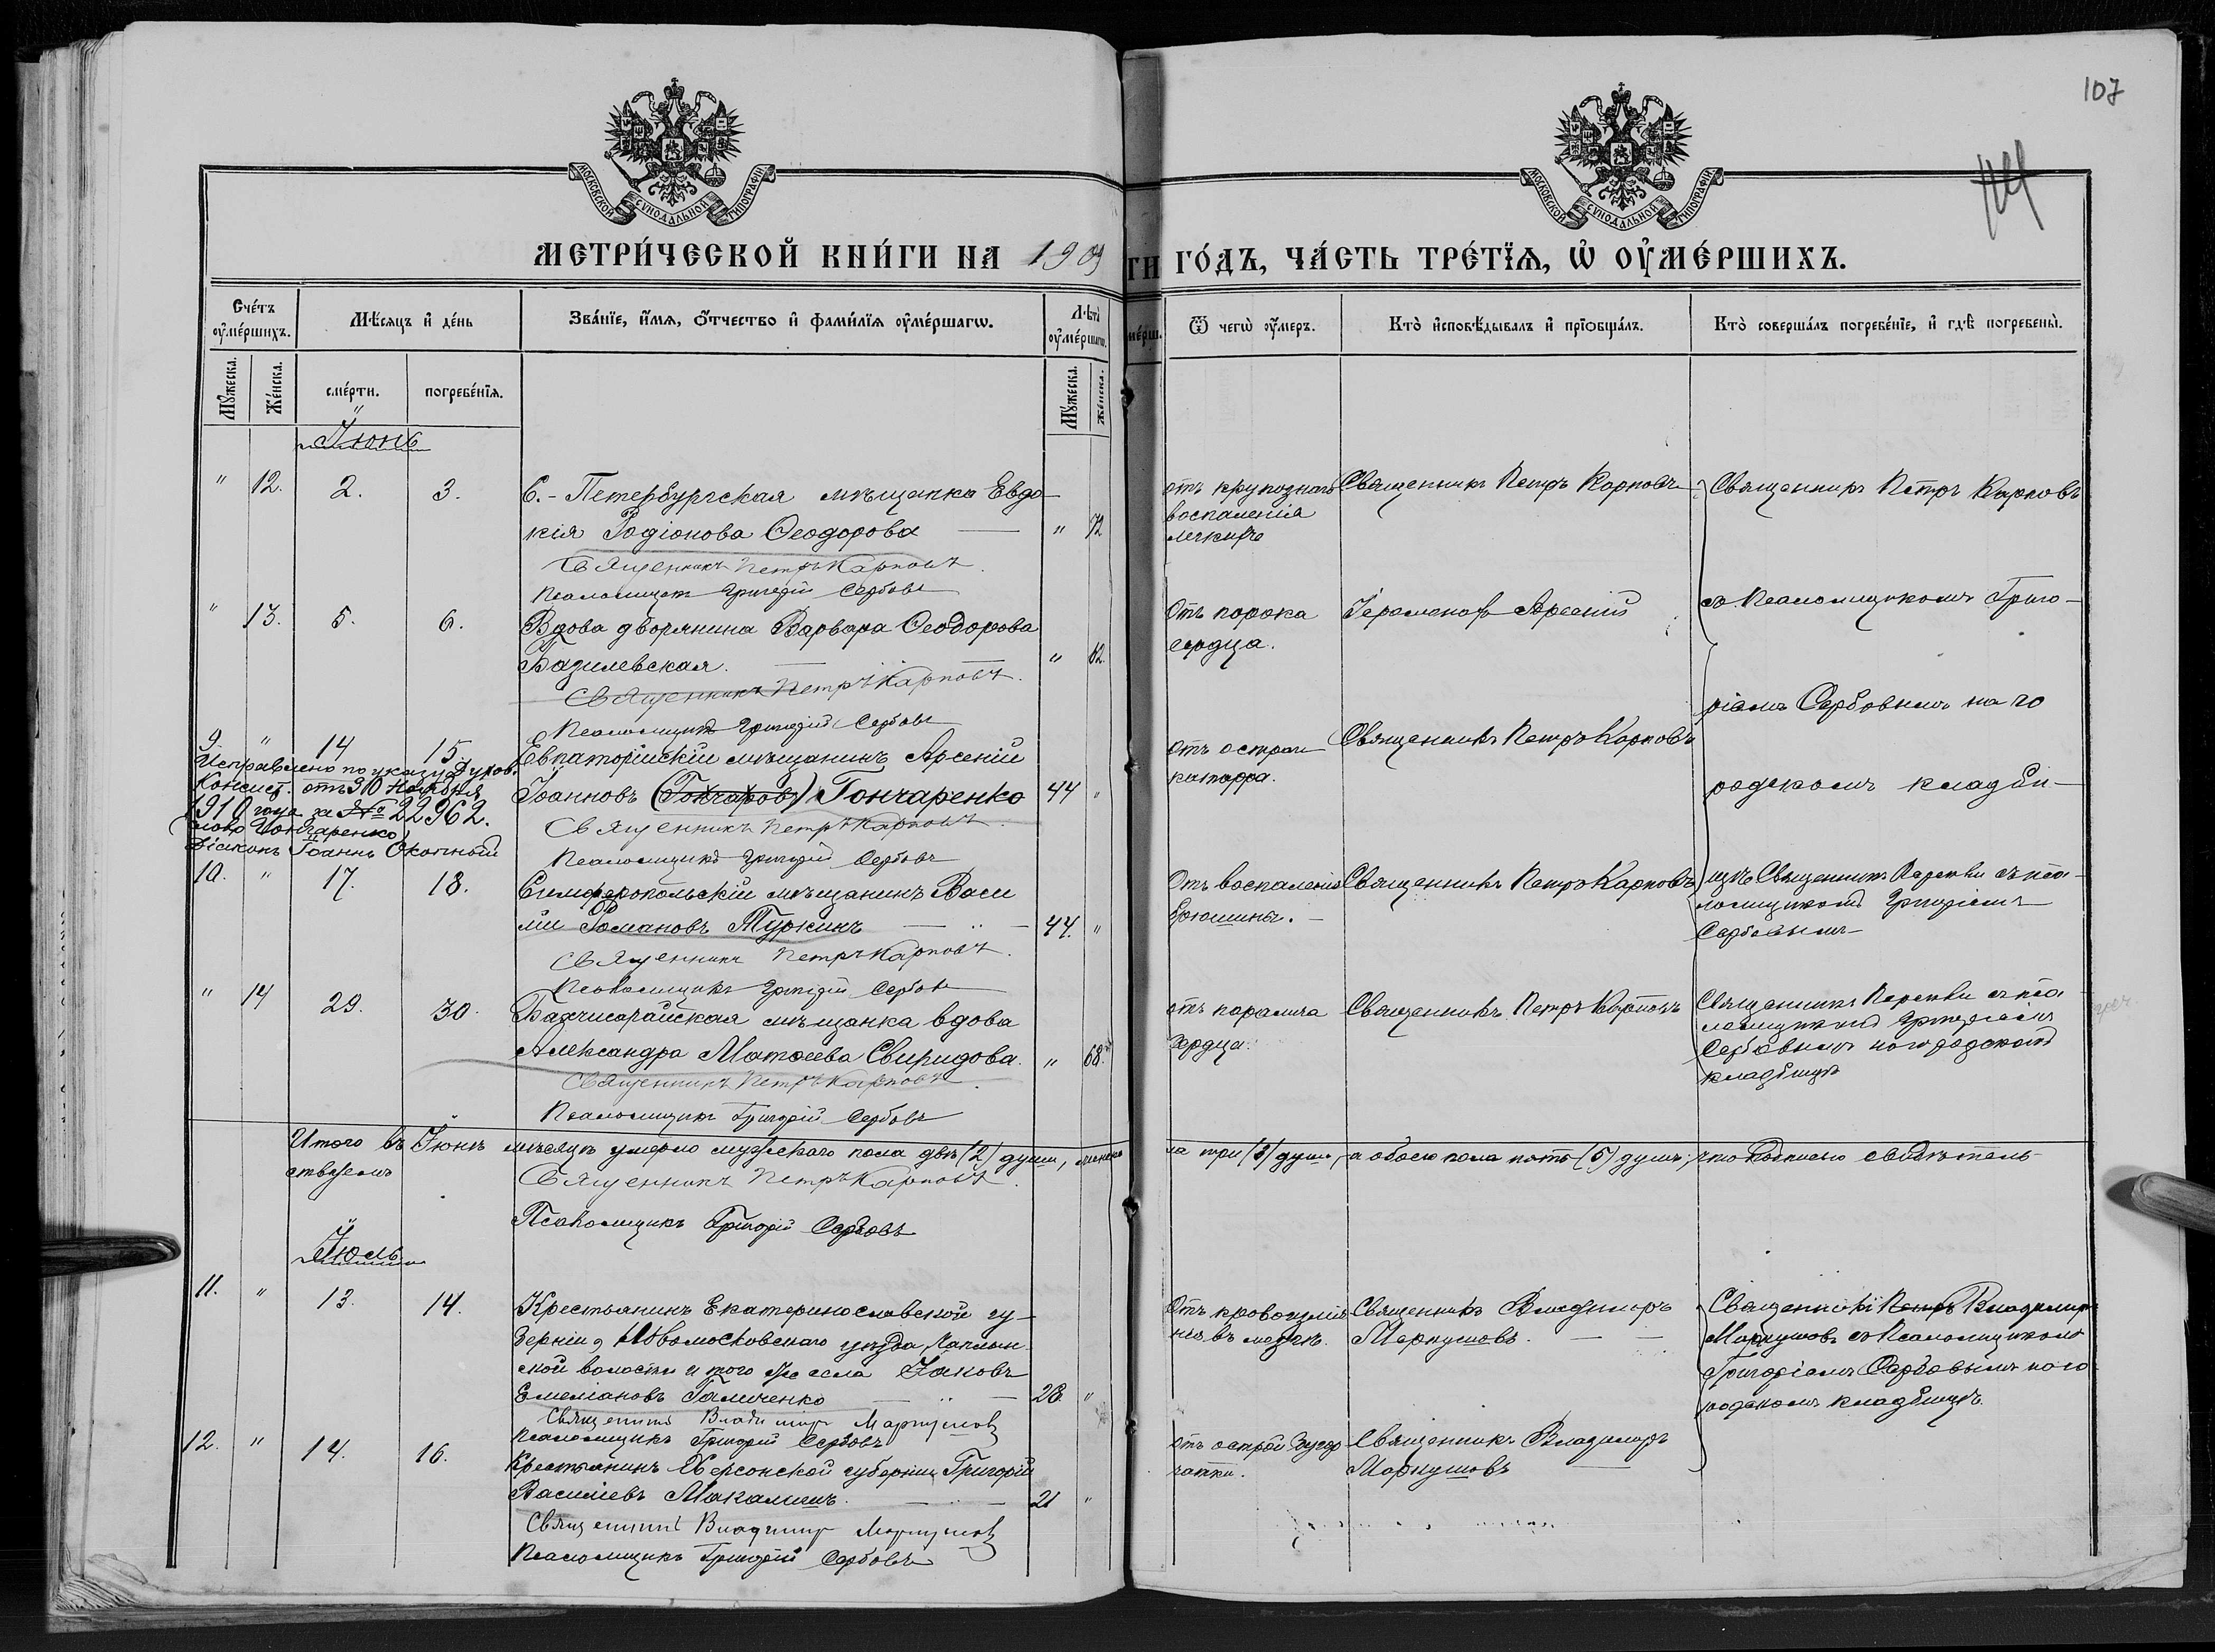 107
МОСКОВСКОЙ СѴНОДАЛЬНОЙ ТИПОГРАФІИ
МОСКОВСКОЙ СѴНОДАЛЬНОЙ ТИПОГРАФІИ
МЕТРИ́ЧЕСКОЙ КНИ́ГИ НА 1909
ГО́ДЪ, ЧА́СТЬ ТРЕ́ТЇѦ, Ѡ҆ ОУ҆МЕ́РШИХЪ.
Сче́тъ оу҆ме́ршихъ.
Мѣ́сяцъ и҆ де́нь
Зва́нїе, и҆́мѧ, о҆́тчество и҆ фами́лїѧ оу҆ме́ршагѡ.
Лѣ́та оу҆ме́ршагѡ.
Ѿ чегѡ̀ оу҆́меръ.
Кто̀ и҆сповѣ́дывалъ и҆ прїѡбща́лъ.
Кто̀ соверша́лъ погребе́нїе, и҆ гдѣ̀ погребены̀.
Мꙋ́жеска.
Же́нска.
сме́рти.
погребе́нїѧ.
Мꙋ́жеска.
Же́нска.
Іюнь
" 12. 2. 3. С.-Петербургская мѣщанка Евдо-
кія Родіонова Ѳеодорова " 72
Священникъ Петръ Карповъ.
Псаломщикъ Григорій Сербовъ
отъ крупознаго
воспаленія
легкихъ
Священникъ Петръ Карповъ
Священникъ Петръ Карповъ
" 13. 5. 6. Вдова дворянина Варвара Ѳеодорова
Базилевская. " 82.
Священникъ Петръ Карповъ.
Псаломщикъ Григорій Сербовъ
Отъ порока
сердца.
Іеромонахъ Арсеній
съ Псаломщикомъ Григо-
ріемъ Сербовымъ на го
9. " 14 15 Евпаторійскій мѣщанинъ Арсеній
Іоанновъ (Гончаровъ) Гончаренко 44 "
Священникъ Петръ Карповъ
Псаломщикъ Григорій Сербовъ
Исправлено по указу Духов.
Консист. отъ 30 Ноября
1910 года за № 22962.
(слово Гончаренко)
Діаконъ Іоаннъ Окопный
отъ остраго
катарра.
Священникъ Петръ Карповъ
родскомъ кладби-
10. " 17. 18. Симферопольскій мѣщанинъ Васи
лій Романовъ Туркинъ 44. "
Священникъ Петръ Карповъ.
Псаломщикъ Григорій Сербовъ
Отъ воспаленія
брюшины.
Священникъ Петръ Карповъ
щѣ Священникъ Карповъ съ пса-
ломщикомъ Григоріемъ
Сербовымъ
" 14 29. 30. Бахчисарайская мѣщанка вдова
Александра Матѳеева Свиридова. " 68.
Священникъ Петръ Карповъ.
Псаломщикъ Григорій Сербовъ
отъ паралича
сердца.
Священникъ Петръ Карповъ
Священникъ Карповъ съ пса
ломщикомъ Григоріемъ
Сербовымъ на городскомъ
кладбищѣ
Итого въ Іюнѣ мѣсяцѣ умерло мужского пола двѣ (2) души, женска
го три (3) души, а обоего пола пять (5) душъ, что подписью свидѣтель-
ствуемъ
Священникъ Петръ Карповъ.
Псаломщикъ Григорій Сербовъ
Іюль
11. " 13. 14. Крестьянинъ Екатеринославской гу-
берніи, Новомосковскаго уѣзда,
ской волости и того же села Іаковъ
Емеліановъ Галиченко 28. "
Священникъ Владимиръ Маркушовъ
Псаломщикъ Григорій Сербовъ
Отъ кровоизлія
нія въ мозгъ.
Священникъ Владимиръ
Маркушовъ.
Священникъ Петръ Владимиръ
Маркушовъ съ Псаломщикомъ
Григоріемъ Сербовымъ на го
родскомъ кладбищѣ.
12. " 14. 16. Крестьянинъ Херсонской губерніи Григорій
Василіевъ Макалишъ. 21 "
Священникъ Владимиръ Маркушовъ
Псаломщикъ Григорій Сербовъ
отъ острой бугор
чатки.
Священникъ Владимиръ
Маркушовъ